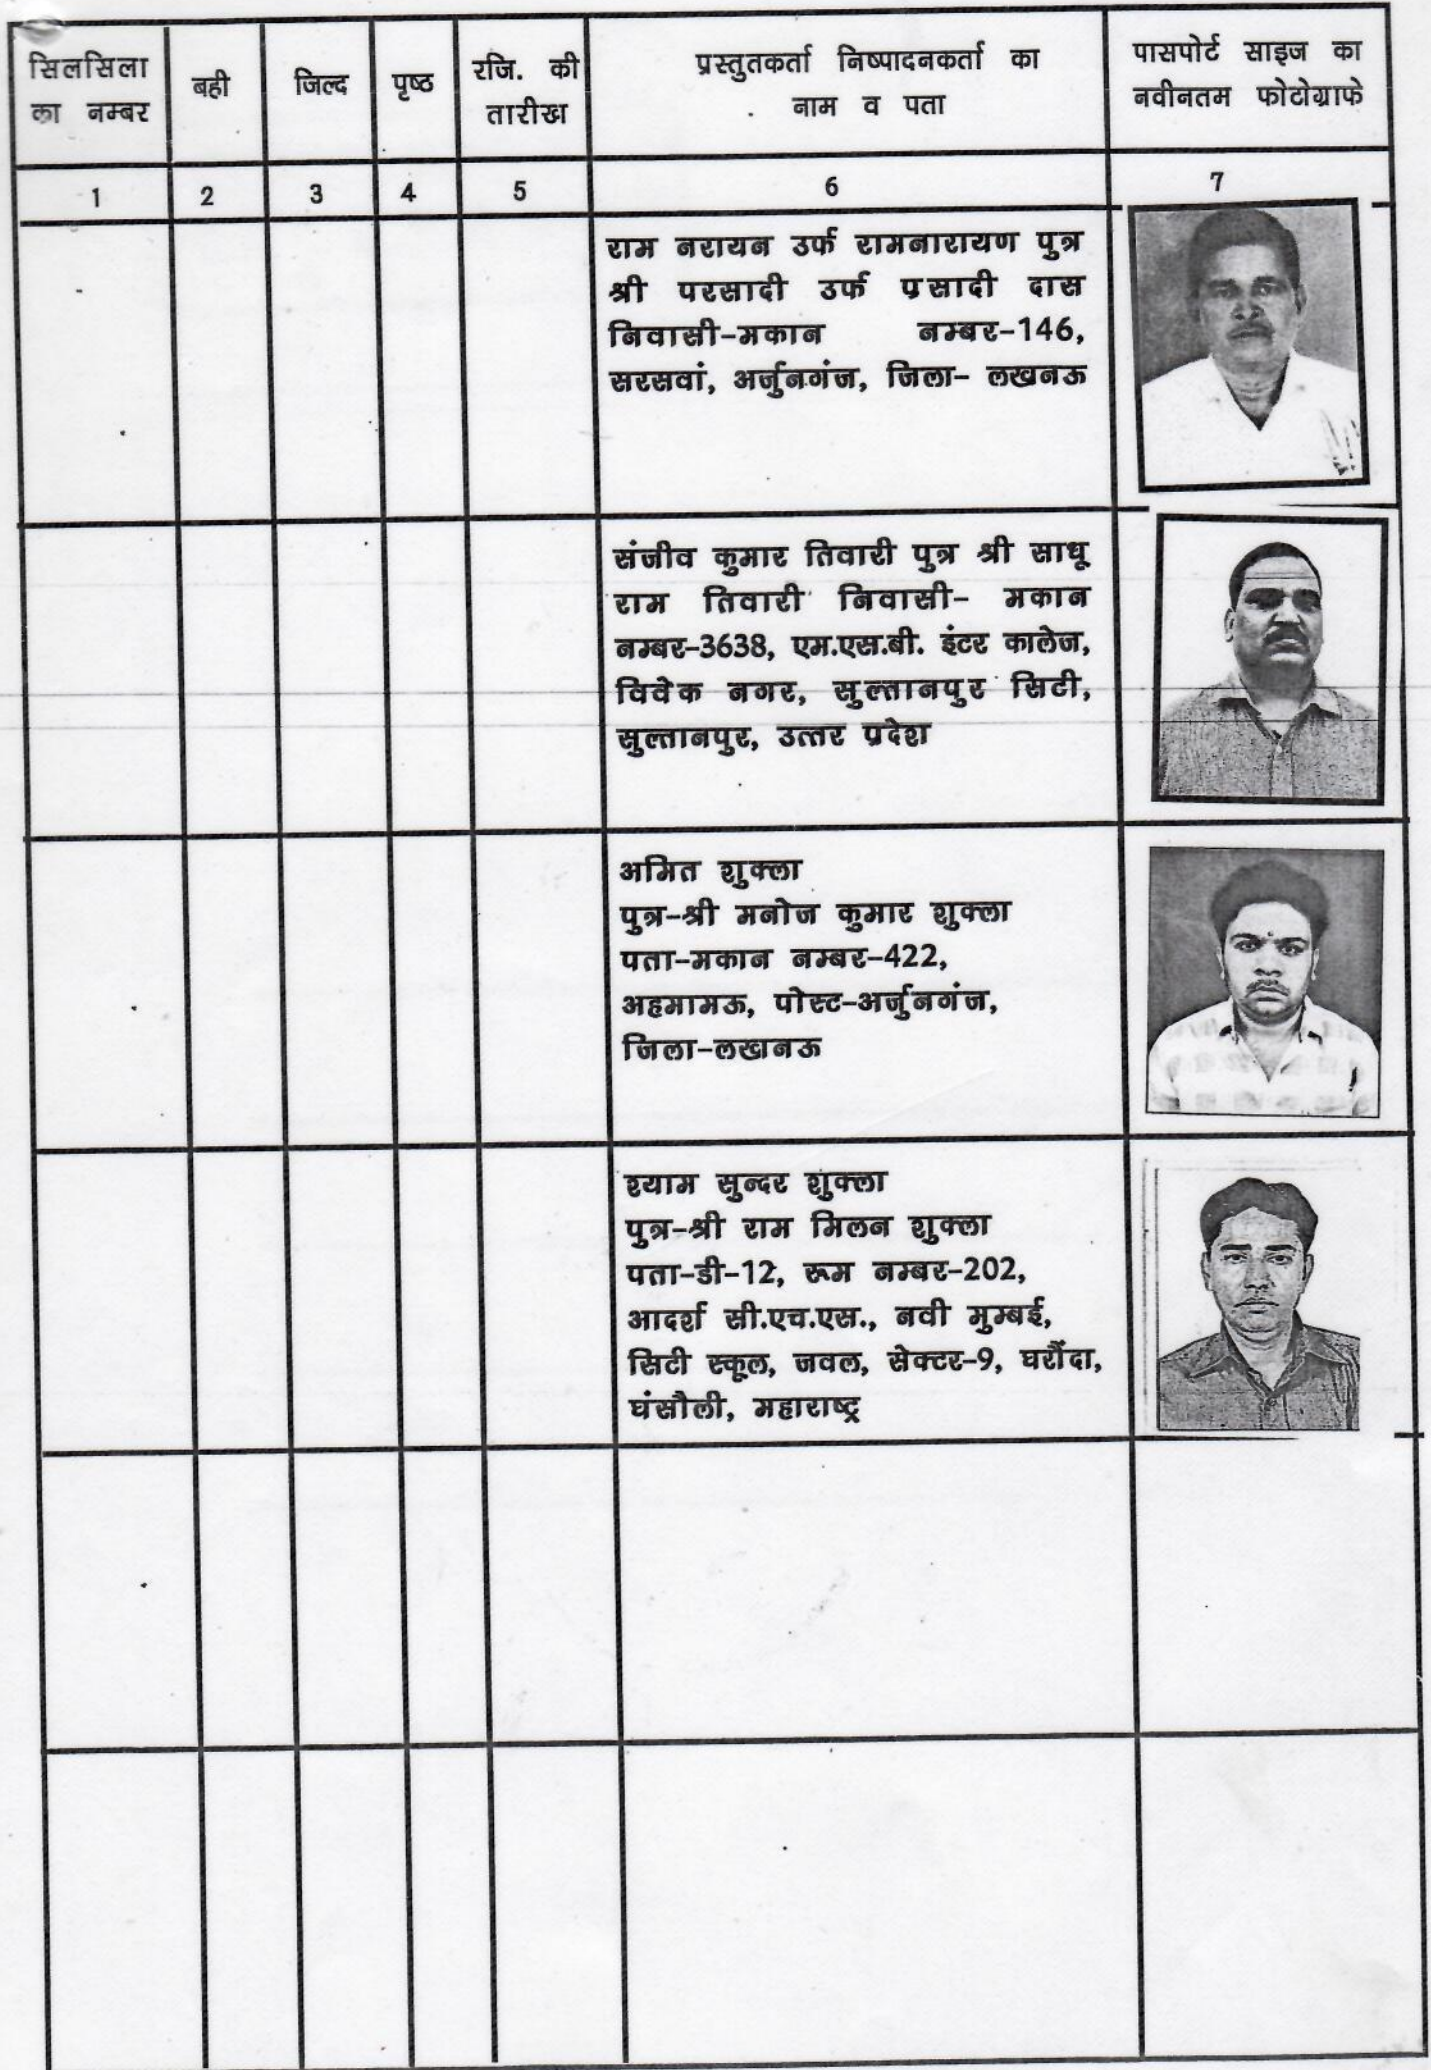 सिलसिला
का नम्बर
बही
जिल्द
पृष्ठ
रजि. की
तारीख
प्रस्तुतकर्ता निष्पादनकर्ता का
नाम व पता
पासपोर्ट साइज का
नवीनतम फोटोग्राफे
1 2 3 4 5 6 7
राम नरायन उर्फ रामनारायण पुत्र
श्री परसादी उर्फ प्रसादी दास
निवासी-मकान नम्बर-146,
सरसवां, अर्जुनगंज, जिला- लखनऊ
संजीव कुमार तिवारी पुत्र श्री साधू
राम तिवारी निवासी- मकान
नम्बर-3638, एम.एस.बी. इंटर कालेज,
विवेक नगर, सुल्तानपुर सिटी,
सुल्तानपुर, उत्तर प्रदेश
अमित शुक्ला
पुत्र-श्री मनोज कुमार शुक्ला
पता-मकान नम्बर-422,
अहमामऊ, पोस्ट-अर्जुनगंज,
जिला-लखनऊ
श्याम सुन्दर शुक्ला
पुत्र-श्री राम मिलन शुक्ला
पता-डी-12, रूम नम्बर-202,
आदर्श सी.एच.एस., नवी मुम्बई,
सिटी स्कूल, जवल, सेक्टर-9, घरौंदा,
घंसौली, महाराष्ट्र